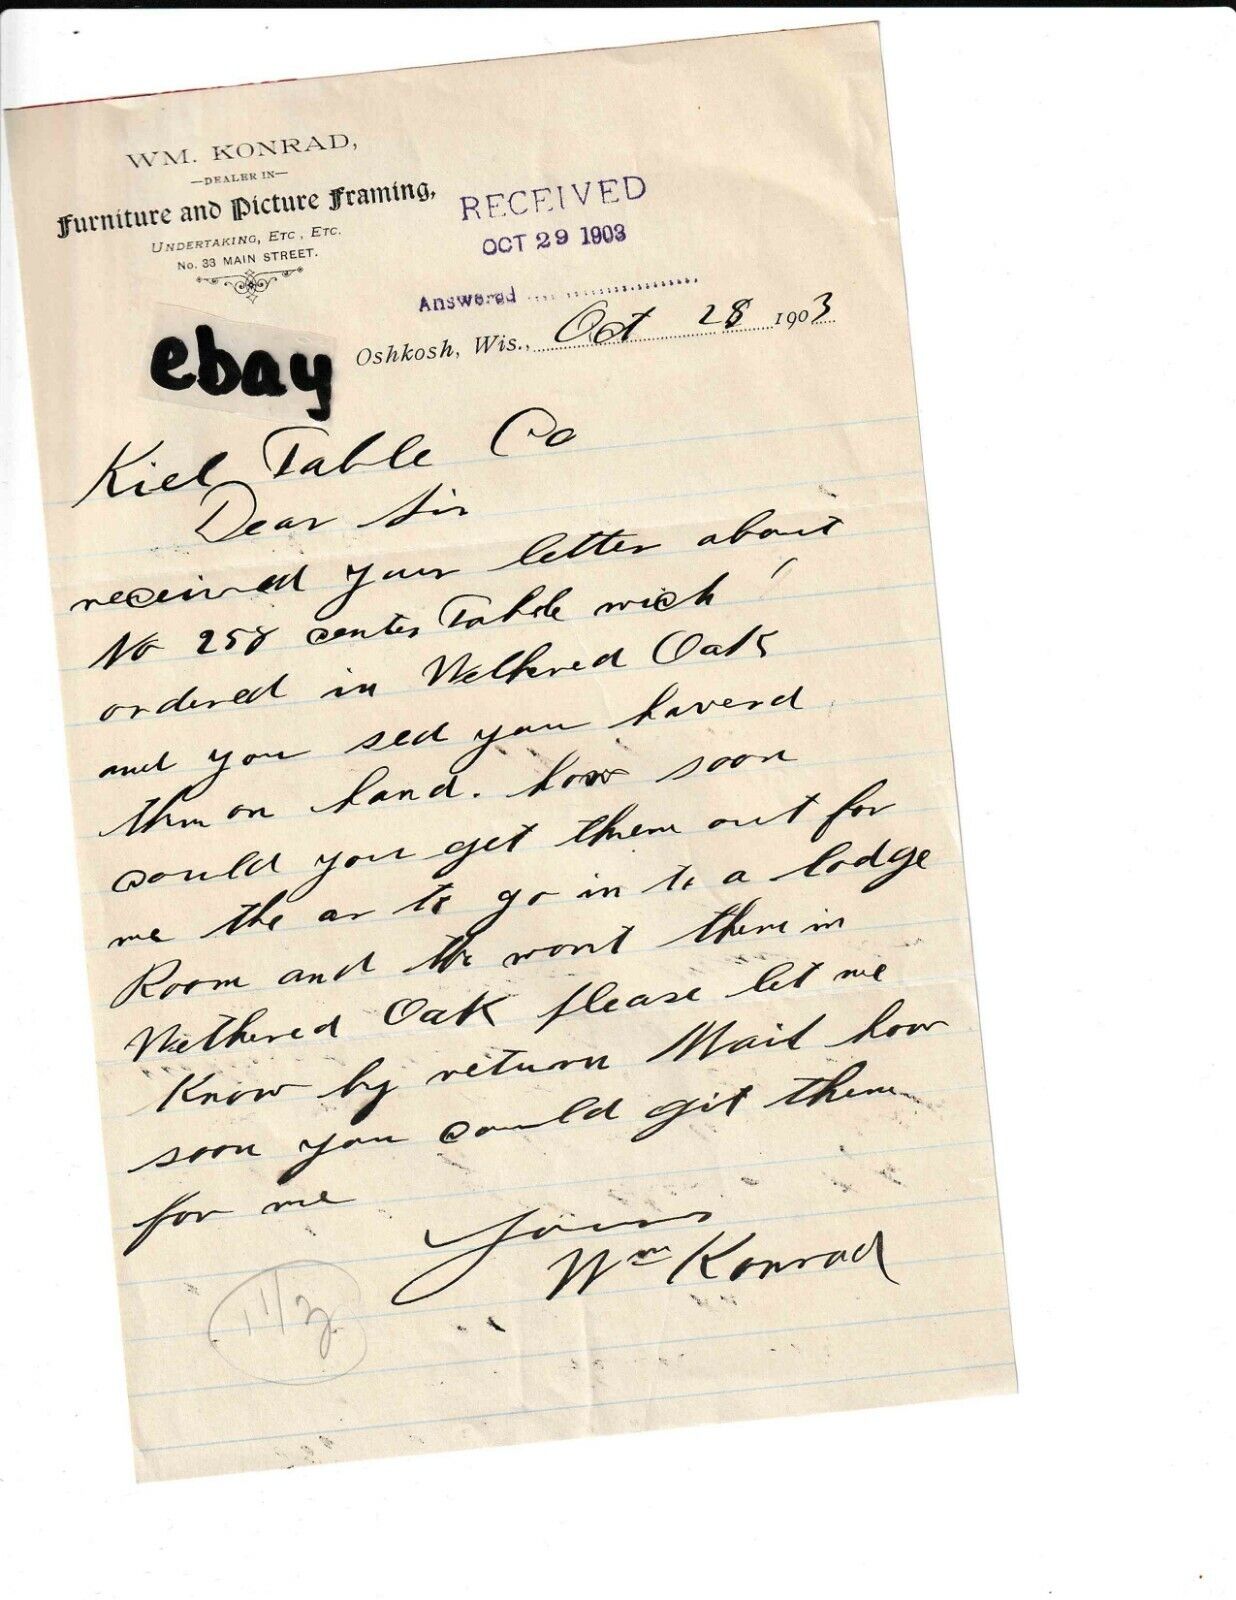 WM. KONRAD,
—DEALER IN—
Furniture and Picture Framing,
UNDERTAKING, ETC, ETC.
No. 33 MAIN STREET.
RECEIVED
OCT 29 1903
Answered
Oshkosh, Wis., Oct 28 1903
ebay
Kiel Table Co
Dear Sir
received your letter about
No 258 center Table wich I
ordered in Wethered Oak
and you sed you haverd
thm on hand. how soon
could you get them out for
me the ar to go in to a lodge
Room and the wont them in
Wethered Oak please let me
Know by return Mail how
soon you could git them
for me
Yours
Wm Konrad
11/3